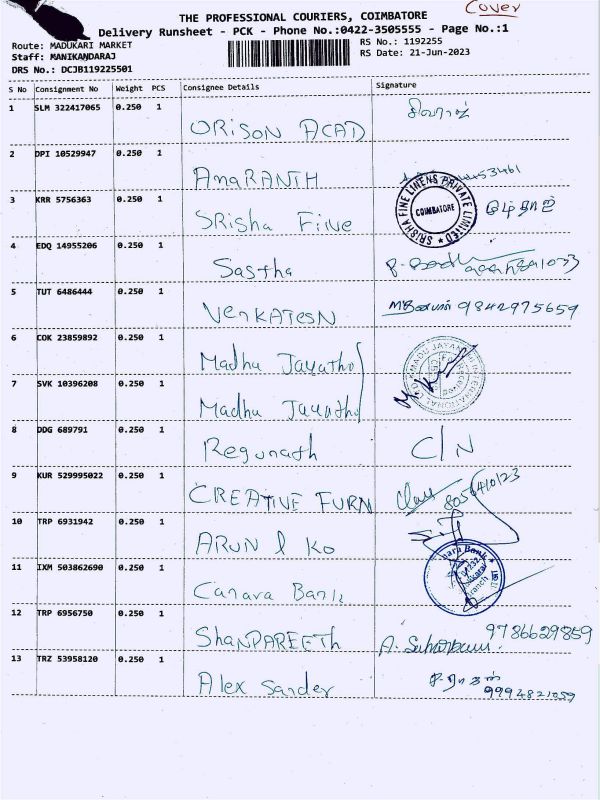 Cover
THE PROFESSIONAL COURIERS, COIMBATORE
Delivery Runsheet - PCK - Phone No.:0422-3505555 - Page No.:1
Route: MADUKARI MARKET
RS No.: 1192255
Staff: MANIKANDARAJ
RS Date: 21-Jun-2023
DRS No.: DCJB119225501
S No Consignment No Weight PCS Consignee Details Signature
1 SLM 322417065 0.250 1
ORISON ACAD
2 DPI 10529947 0.250 1
AmaRANTH
3 KRR 5756363 0.250 1
SRisha Fine
SRISHA FINE LINENS PRIVATE LIMITED
COIMBATORE
4 EDQ 14955206 0.250 1
Sastha
5 TUT 6486444 0.250 1
VenKATesN 9842975659
6 COK 23859892 0.250 1
Madhu Jayatho
7 SVK 10396208 0.250 1
Madhu Jayatho
8 DDG 689791 0.250 1
Regunath C/N
9 KUR 529995022 0.250 1
CREATIVE FURN
10 TRP 6931942 0.250 1
ARUN & KO
11 IXM 503862690 0.250 1
Canara Bank
12 TRP 6956750 0.250 1
ShanPAREETH 9786629859
13 TRZ 53958120 0.250 1
Alex Sander 9994821059